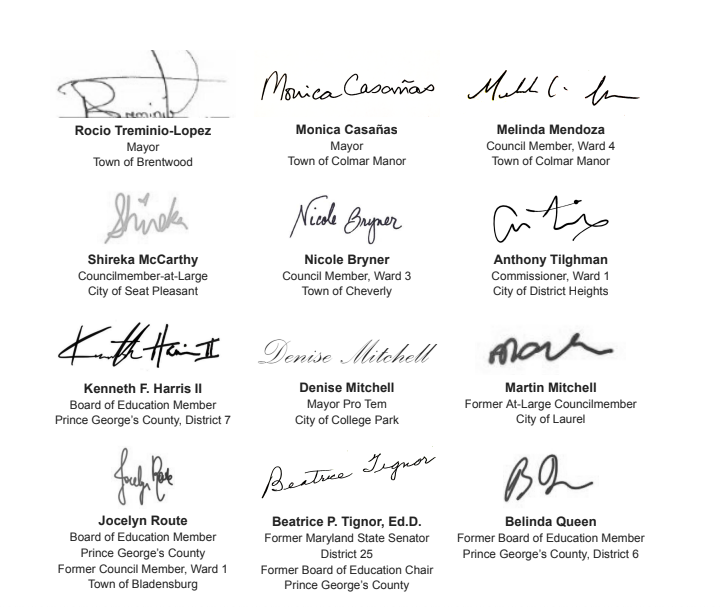 Treminio
Monica Casañas
Rocio Treminio-Lopez
Monica Casañas
Melinda Mendoza
Mayor
Mayor
Council Member, Ward 4
Town of Brentwood
Town of Colmar Manor
Town of Colmar Manor
Shireka
Nicole Bryner
Shireka McCarthy
Nicole Bryner
Anthony Tilghman
Councilmember-at-Large
Council Member, Ward 3
Commissioner, Ward 1
City of Seat Pleasant
Town of Cheverly
City of District Heights
Kenneth Harris II
Denise Mitchell
Kenneth F. Harris II
Denise Mitchell
Martin Mitchell
Board of Education Member
Mayor Pro Tem
Former At-Large Councilmember
Prince George's County, District 7
City of College Park
City of Laurel
Jocelyn Route
Beatrice Tignor
Jocelyn Route
Beatrice P. Tignor, Ed.D.
Belinda Queen
Board of Education Member
Former Maryland State Senator
Former Board of Education Member
Prince George's County
District 25
Prince George's County, District 6
Former Council Member, Ward 1
Former Board of Education Chair
Town of Bladensburg
Prince George's County